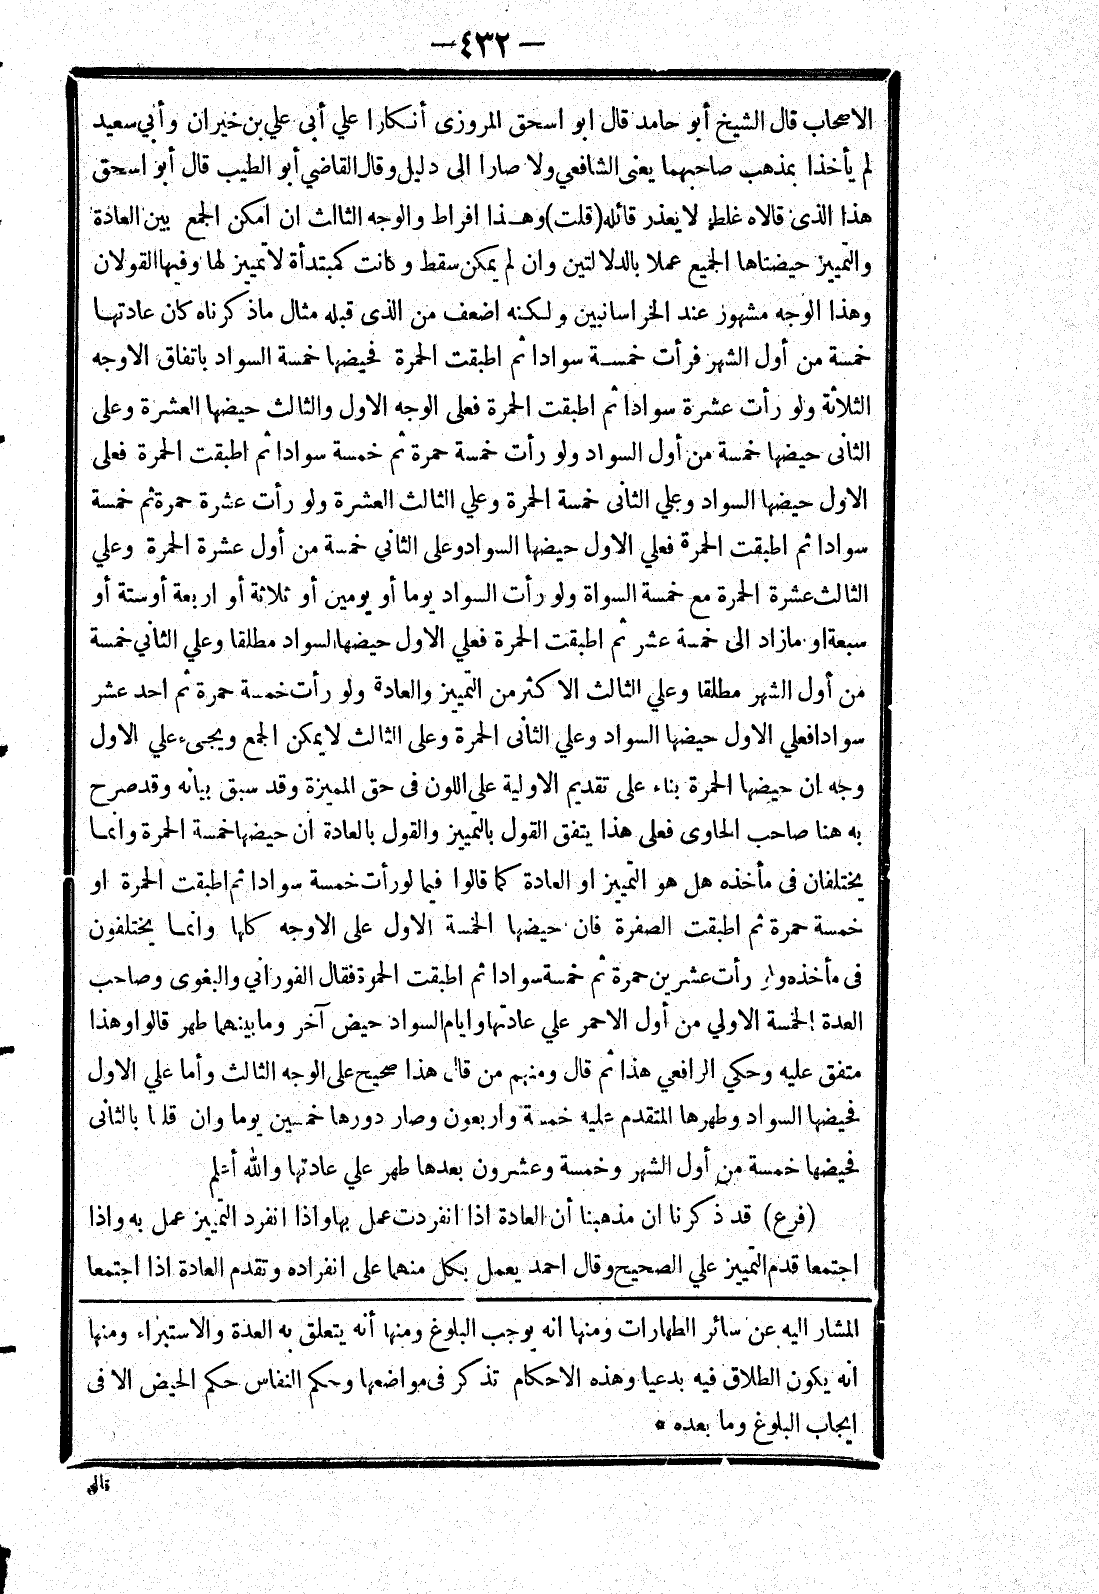 — ٤٣٢ —
الاصحاب قال الشيخ أبو حامد قال ابو اسحق المروزى أنكارا علي أبى علي بن خيران وأبي سعيد
لم يأخذا بمذهب صاحبهما يعنى الشافعي ولا صارا الى دليل وقال القاضي أبو الطيب قال أبو اسحق
هذا الذى قالاه غلط لا يعذر قائله (قلت) وهذا افراط والوجه الثالث ان امكن الجمع بين العادة
والتمييز حيضناها الجميع عملا بالدلالتين وان لم يمكن سقط وكانت كمبتدأة لا تمييز لها وفيها القولان
وهذا الوجه مشهور عند الخراسانيين ولكنه اضعف من الذى قبله مثال ماذكرناه كان عادتها
خمسة من أول الشهر فرأت خمسة سوادا ثم اطبقت الحمرة فحيضها خمسة السواد باتفاق الاوجه
الثلاثة ولو رأت عشرة سوادا ثم اطبقت الحمرة فعلى الوجه الاول والثالث حيضها العشرة وعلى
الثانى حيضها خمسة من أول السواد ولو رأت خمسة حمرة ثم خمسة سوادا ثم اطبقت الحمرة فعلى
الاول حيضها السواد وعلي الثانى خمسة الحمرة وعلي الثالث العشرة ولو رأت عشرة حمرة ثم خمسة
سوادا ثم اطبقت الحمرة فعلي الاول حيضها السواد وعلى الثاني خمسة من أول عشرة الحمرة وعلي
الثالث عشرة الحمرة مع خمسة السواة ولو رأت السواد يوما أو يومين أو ثلاثة أو اربعة أوستة أو
سبعة او مازاد الى خمسة عشر ثم اطبقت الحمرة فعلي الاول حيضها السواد مطلقا وعلي الثاني خمسة
من أول الشهر مطلقا وعلي الثالث الاكثر من التمييز والعادة ولو رأت خمسة حمرة ثم احد عشر
سوادا فعلي الاول حيضها السواد وعلي الثانى الحمرة وعلى الثالث لا يمكن الجمع ويجىء علي الاول
وجه ان حيضها الحمرة بناء على تقديم الاولية على اللون فى حق المميزة وقد سبق بيانه وقد صرح
به هنا صاحب الحاوى فعلى هذا يتفق القول بالتمييز والقول بالعادة ان حيضها خمسة الحمرة وانما
يختلفان فى مأخذه هل هو التمييز او العادة كما قالوا فيما لو رأت خمسة سوادا ثم اطبقت الحمرة او
خمسة حمرة ثم اطبقت الصفرة فان حيضها الخمسة الاول على الاوجه كلها وانما يختلفون
فى مأخذه ولو رأت عشرين حمرة ثم خمسة سوادا ثم اطبقت الحمرة فقال الفوراني والبغوى وصاحب
العدة الخمسة الاولي من أول الاحمر علي عادتها وايام السواد حيض آخر وما بينهما طهر قالوا وهذا
متفق عليه وحكي الرافعي هذا ثم قال ومنهم من قال هذا صحيح على الوجه الثالث وأما علي الاول
فحيضها السواد وطهرها المتقدم عليه خمسة واربعون وصار دورها خمسين يوما وان قلنا بالثانى
فحيضها خمسة من أول الشهر وخمسة وعشرون بعدها طهر علي عادتها والله أعلم
(فرع) قد ذكرنا ان مذهبنا أن العادة اذا انفردت عمل بها واذا انفرد التمييز عمل به واذا
اجتمعا قدم التمييز علي الصحيح وقال احمد يعمل بكل منهما على انفراده وتقدم العادة اذا اجتمعا
المشار اليه عن سائر الطهارات ومنها انه يوجب البلوغ ومنها أنه يتعلق به العدة والاستبراء ومنها
انه يكون الطلاق فيه بدعيا وهذه الاحكام تذكر فى مواضعها وحكم النفاس حكم الحيض الا فى
ايجاب البلوغ وما بعده *